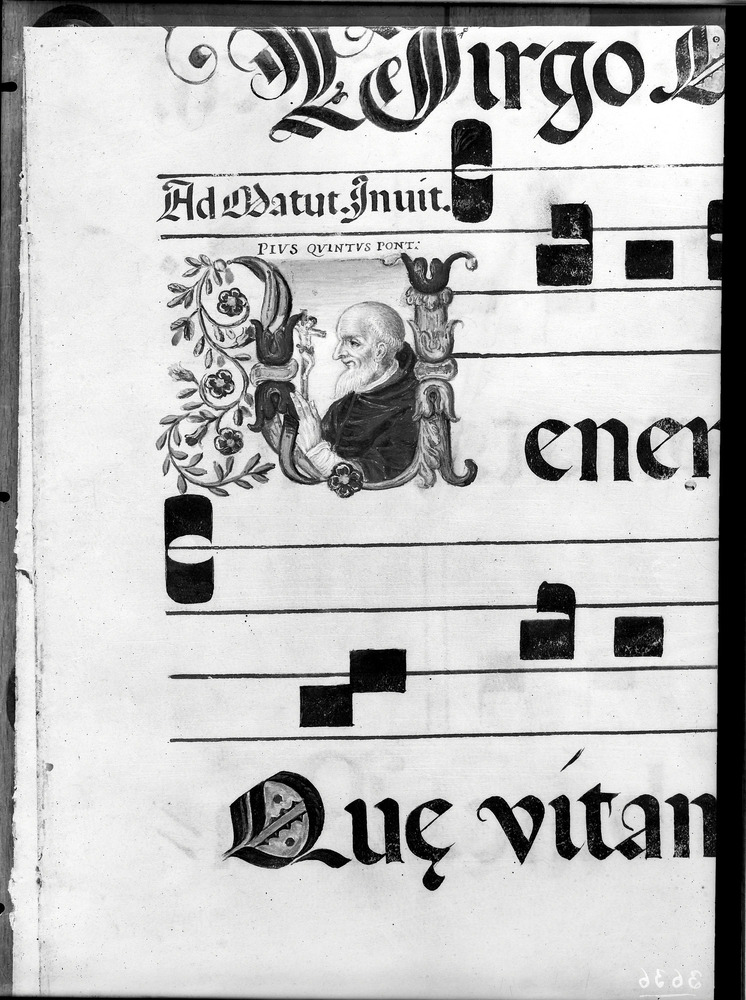 Virgo
Ad Matut. Inuit.
PIVS QVINTVS PONT.
Vener
Quę vítam
3636